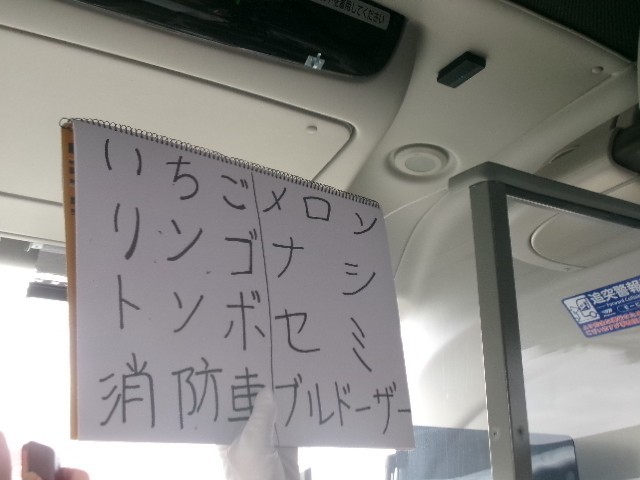 いちご メロン
リンゴ ナシ
トンボ セミ
消防車 ブルドーザー
追突警報